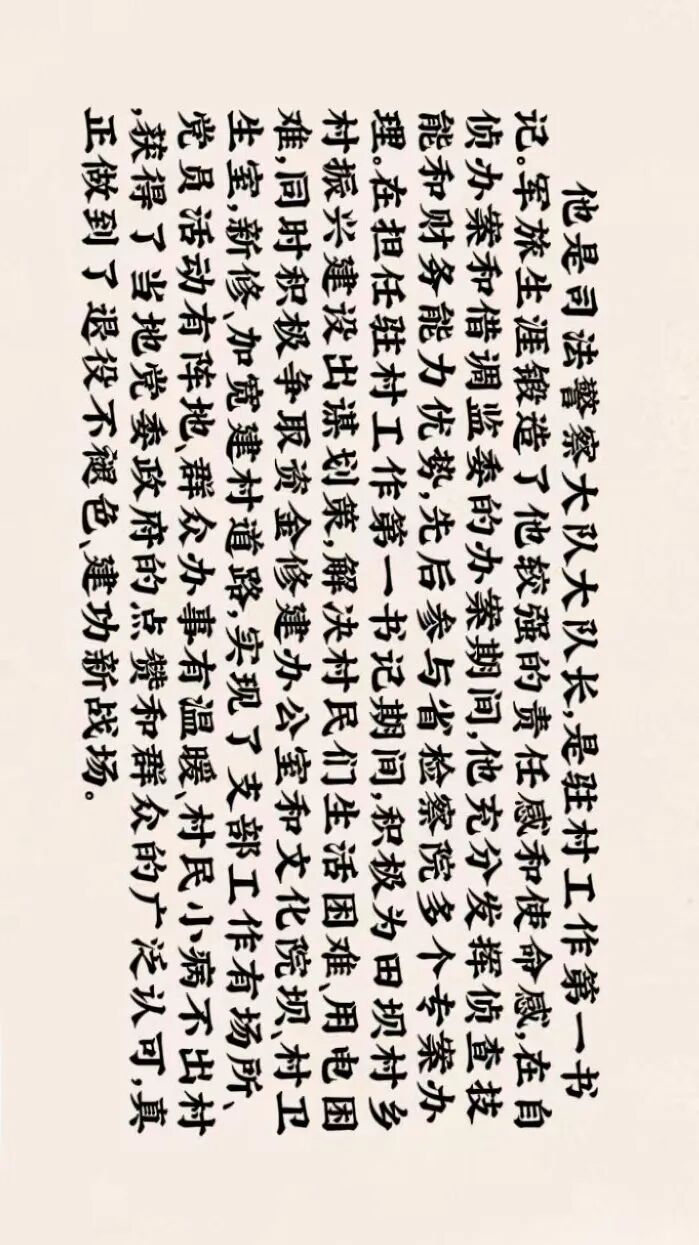 他是司法警察大队大队长,是驻村工作第一书
记。军旅生涯锻造了他较强的责任感和使命感,在自
侦办案和借调监委的办案期间,他充分发挥侦查技
能和财务能力优势,先后参与省检察院多个专案办
理。在担任驻村工作第一书记期间,积极为田坝村乡
村振兴建设出谋划策,解决村民们生活困难、用电困
难,同时积极争取资金修建办公室和文化院坝、村卫
生室,新修、加宽建村道路,实现了支部工作有场所、
党员活动有阵地、群众办事有温暖、村民小病不出村
,获得了当地党委政府的点赞和群众的广泛认可,真
正做到了退役不褪色、建功新战场。